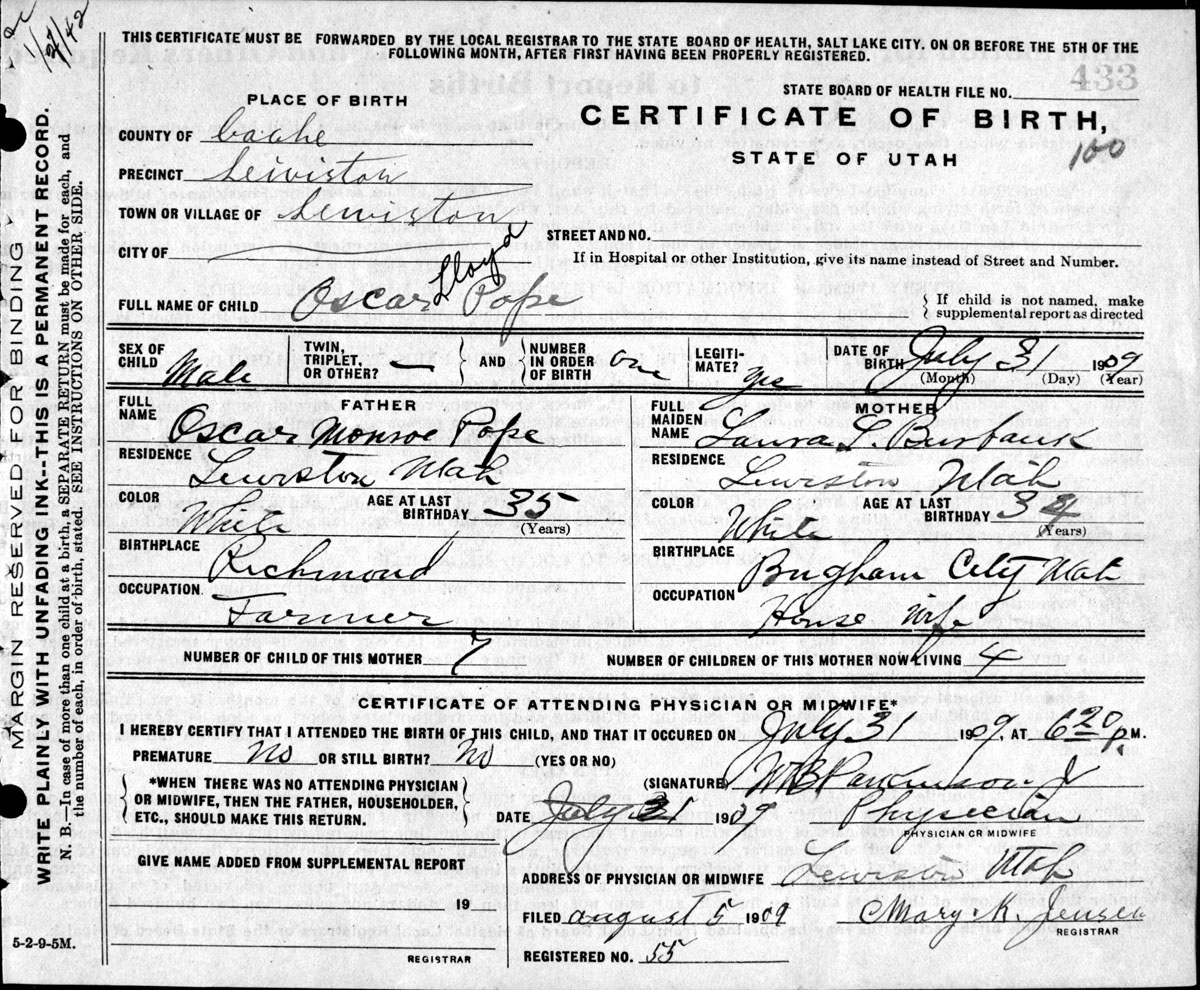 1/2/42
THIS CERTIFICATE MUST BE FORWARDED BY THE LOCAL REGISTRAR TO THE STATE BOARD OF HEALTH, SALT LAKE CITY. ON OR BEFORE THE 5TH OF THE
FOLLOWING MONTH, AFTER FIRST HAVING BEEN PROPERLY REGISTERED.
433
STATE BOARD OF HEALTH FILE NO.
PLACE OF BIRTH
CERTIFICATE OF BIRTH,
STATE OF UTAH
100
COUNTY OF Cache
PRECINCT Lewiston
TOWN OR VILLAGE OF Lewiston
STREET AND NO.
CITY OF
If in Hospital or other Institution, give its name instead of Street and Number.
FULL NAME OF CHILD Oscar Lloyd Pope
If child is not named, make
supplemental report as directed
SEX OF CHILD Male
TWIN, TRIPLET, OR OTHER? — AND NUMBER IN ORDER OF BIRTH one
LEGITI-MATE? yes
DATE OF BIRTH July 31 1909
(Month) (Day) (Year)
FATHER
FULL NAME Oscar Monroe Pope
RESIDENCE Lewiston Utah
COLOR White AGE AT LAST BIRTHDAY 35 (Years)
BIRTHPLACE Richmond
OCCUPATION Farmer
MOTHER
FULL MAIDEN NAME Laura L. Burbank
RESIDENCE Lewiston Utah
COLOR White AGE AT LAST BIRTHDAY 34 (Years)
BIRTHPLACE Brigham City Utah
OCCUPATION House Wife
NUMBER OF CHILD OF THIS MOTHER 7
NUMBER OF CHILDREN OF THIS MOTHER NOW LIVING 4
CERTIFICATE OF ATTENDING PHYSICIAN OR MIDWIFE*
I HEREBY CERTIFY THAT I ATTENDED THE BIRTH OF THIS CHILD, AND THAT IT OCCURED ON July 31 1909. AT 6 20 P. M.
PREMATURE No OR STILL BIRTH? No (YES OR NO)
*WHEN THERE WAS NO ATTENDING PHYSICIAN
OR MIDWIFE, THEN THE FATHER, HOUSEHOLDER,
ETC., SHOULD MAKE THIS RETURN.
(SIGNATURE) W B Parkinson Jr
DATE July 31 1909 Physician
PHYSICIAN OR MIDWIFE
GIVE NAME ADDED FROM SUPPLEMENTAL REPORT
19
REGISTRAR
ADDRESS OF PHYSICIAN OR MIDWIFE Lewiston Utah
FILED August 5 1909 Mary. K. Jensen
REGISTRAR
REGISTERED NO. 55
5-2-9-5M.
MARGIN RESERVED FOR BINDING
WRITE PLAINLY WITH UNFADING INK--THIS IS A PERMANENT RECORD.
N. B.—In case of more than one child at a birth, a SEPARATE RETURN must be made for each, and
the number of each, in order of birth, stated. SEE INSTRUCTIONS ON OTHER SIDE.